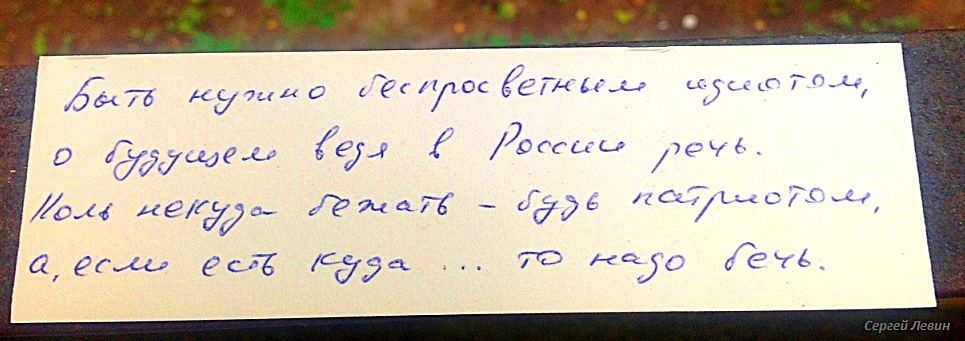 Быть нужно беспросветным идиотом,
о будущем ведя в России речь.
Коль некуда бежать – будь патриотом,
а, если есть куда ... то надо бечь.
Сергей Левин